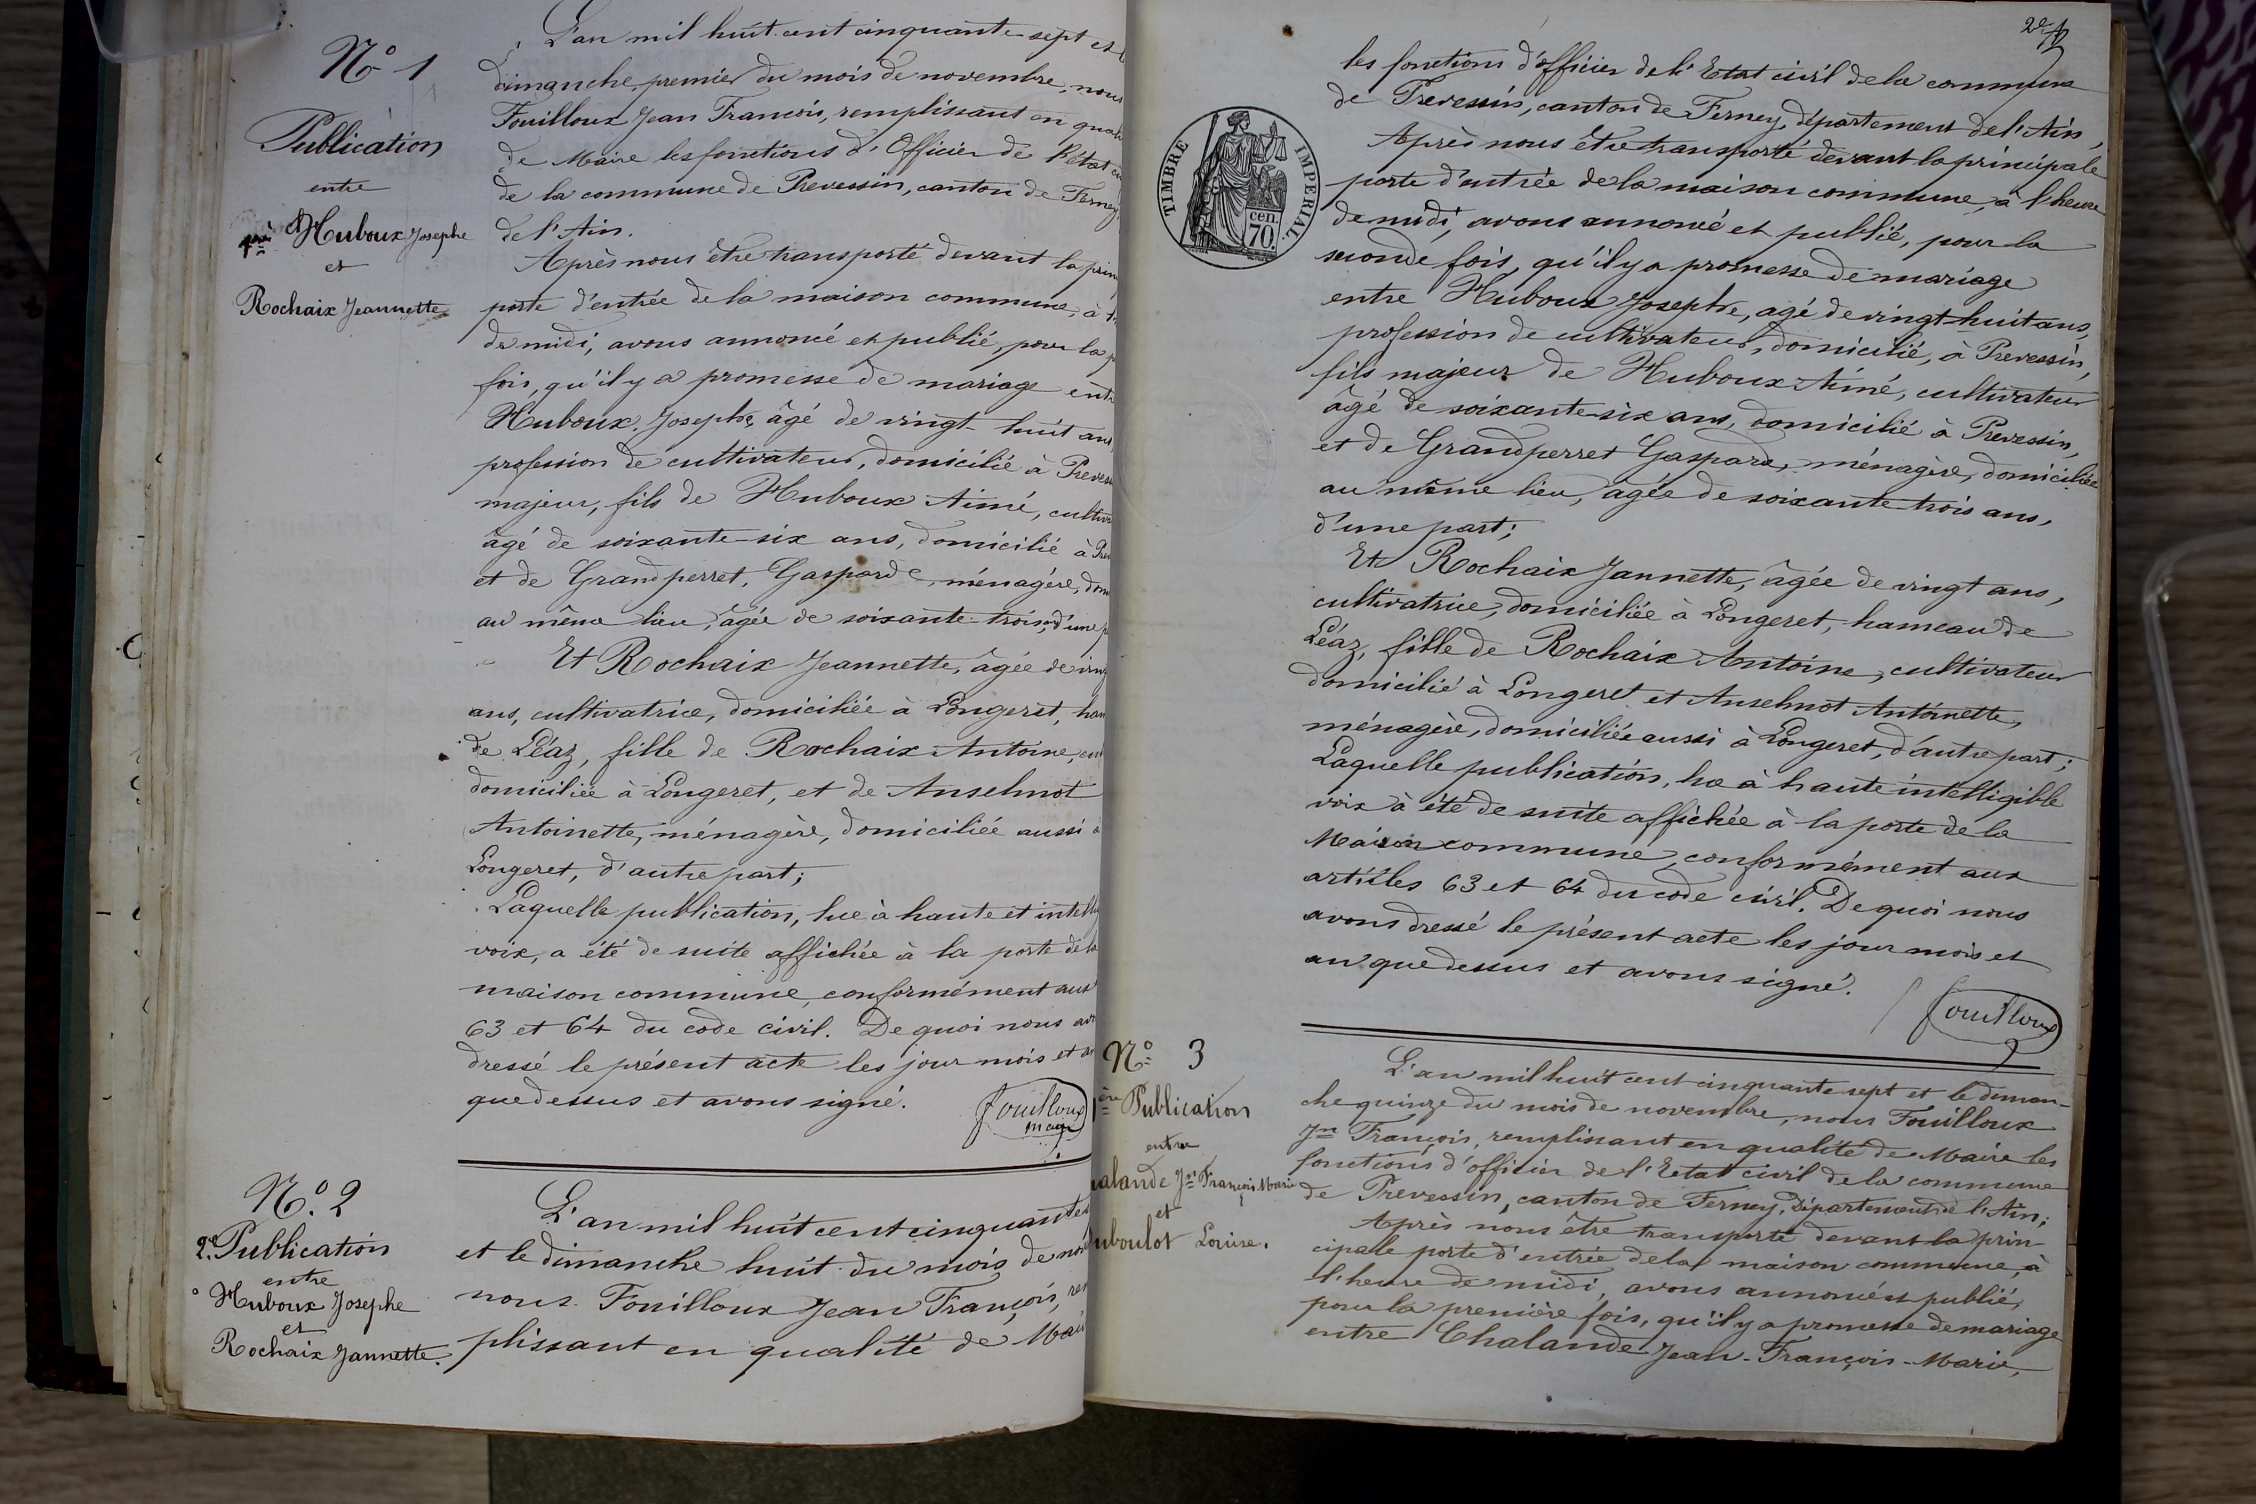 N° 1
Publication
entre
Huboux Josephe
et
Rochaix Jeannette
L'an mil huit cent cinquante sept et
dimanche, premier du mois de novembre, nous
Fouilloux Jean François, remplissant en
de Maire les fonctions d'Officier de l'état
de la commune de Prevessin, canton de Ferney,
de l'Ain.
Après nous être transporté devant la
porte d'entrée de la maison commune, à
de midi, avons annoncé et publié, pour la
fois, qu'il y a promesse de mariage
Huboux Josephe, âgé de vingt-huit ans
profession de cultivateur, domicilié à
majeur, fils de Huboux Aimé,
âgé de soixante-six ans, domicilié à
et de Grandperret, Gasparde, ménagère,
au même lieu, âgée de soixante-trois, d'une
Et Rochaix Jeannette, âgée de
ans, cultivatrice, domiciliée à Longeret,
de Léaz, fille de Rochaix Antoine,
domiciliée à Longeret, et de Anselmot
Antoinette, ménagère, domiciliée aussi à
Longeret, d'autre part;
Laquelle publication, lue à haute et
voix, a été de suite affichée à la porte de la
maison commune, conformément aux
63 et 64 du code civil. De quoi nous
dressé le présent acte les jour mois et
que dessus et avons signé.
Fouilloux
maire
N° 2
2e Publication
entre
Huboux Josephe
et
Rochaix Jannette.
L'an mil huit cent cinquante
et le dimanche huit du mois de
nous Fouilloux Jean François,
plissant en qualité de
les fonctions d'officier de l'Etat civil de la commune
de Prevessin, canton de Ferney, département de l'Ain,
Après nous être transporté devant la principale
porte d'entrée de la maison commune, à l'heure
de midi, avons annoncé et publié, pour la
seconde fois, qu'il y a promesse de mariage
entre Huboux Josephe, agé de vingt-huit ans,
profession de cultivateur, domicilié, à Prevessin,
fils majeur de Huboux Aimé, cultivateur
âgé de soixante-six ans, domicilié à Prevessin,
et de Grandperret Gasparde, ménagère, domiciliée
au même lieu, âgée de soixante-trois ans,
d'une part;
Et Rochaix Jannette, âgée de vingt ans,
cultivatrice, domiciliée à Longeret, hameau de
Léaz, fille de Rochaix Antoine, cultivateur
domicilié à Longeret et Anselmot Antoinette,
ménagère, domiciliée aussi à Longeret, d'autre part;
Laquelle publication, lue à haute intelligible
voix à été de suite affichée à la porte de la
Maison commune, conformément aux
articles 63 et 64 du code civil. De quoi nous
avons dressé le présent acte les jour mois et
an que dessus et avons signé.
Fouilloux
TIMBRE IMPERIAL.
70 cen.
N° 3
1ère Publication
entre
Jn François Marie
et
Louise.
L'an mil huit cent cinquante sept et le diman-
che quinze du mois de novembre, nous Fouilloux
Jn François, remplissant en qualité de Maire les
fonctions d'officier de l'Etat civil de la commune
de Prevessin, canton de Ferney, Département de l'Ain;
Après nous être transporté devant la prin-
cipale porte d'entrée de la maison commune, à
l'heure de midi, avons annoncé et publié,
pour la première fois, qu'il y a promesse de mariage
entre Chalande Jean-François-Marie,